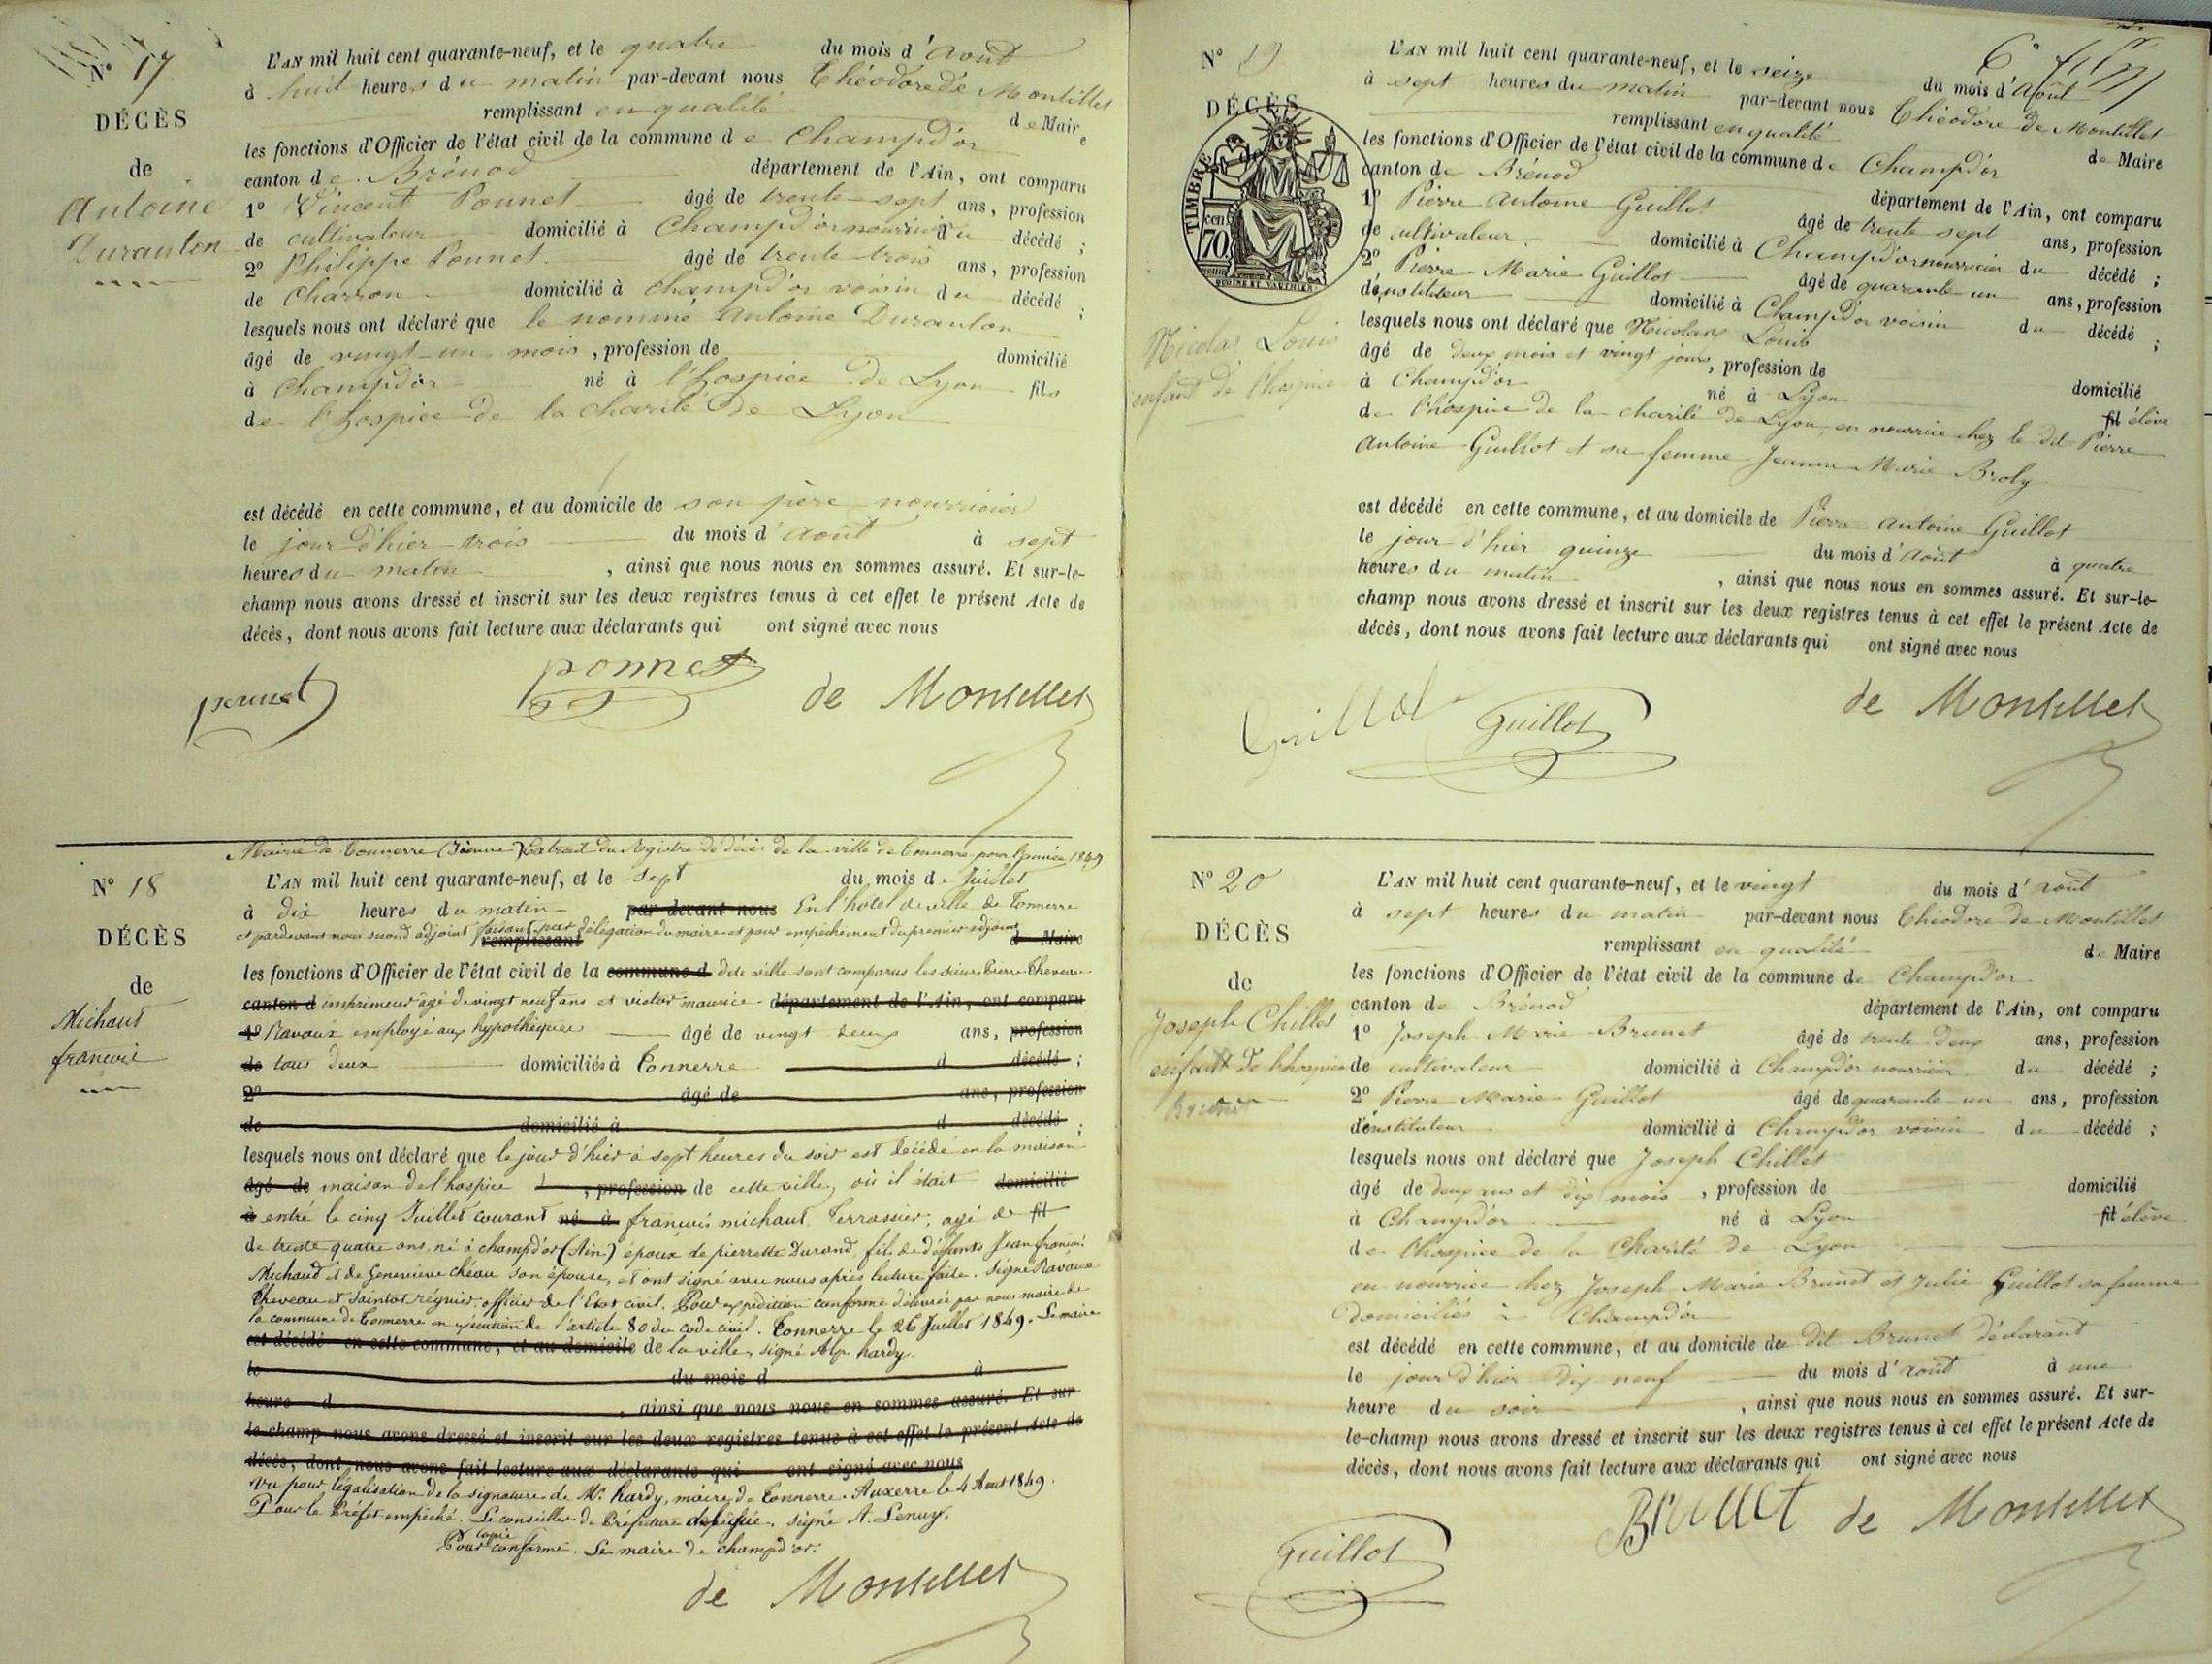 N° 17
DÉCÈS
de
Antoine
Duranton
L'AN mil huit cent quarante-neuf, et le quatre du mois d'août
à huit heures du matin par-devant nous Théodore de Montillet
remplissant en qualité de Maire
les fonctions d'Officier de l'état civil de la commune de Champd'or
canton de Brénod département de l'Ain, ont comparu
1° Vincent Ponnet âgé de trente-sept ans, profession
de cultivateur domicilié à Champd'or nourricier du décédé ;
2° Philippe Ponnet âgé de trente trois ans, profession
de Charron domicilié à champd'or voisin du décédé ;
lesquels nous ont déclaré que le nommé Antoine Duranton
âgé de vingt-un mois, profession de domicilié
à Champd'or né à l'hospice de Lyon fils
de l'hospice de la charité de Lyon
est décédé en cette commune, et au domicile de son père nourricier
le jour d'hier trois du mois d'août à sept
heures du matin, ainsi que nous nous en sommes assuré. Et sur-le-
champ nous avons dressé et inscrit sur les deux registres tenus à cet effet le présent Acte de
décès, dont nous avons fait lecture aux déclarants qui ont signé avec nous
ponnet ponnet de Montillet
N° 18
DÉCÈS
de
Michaut
francois
Mairie de Tonnerre (Yonne) Extrait du Registre de décès de la ville de Tonnerre pour l'année 1849
L'AN mil huit cent quarante-neuf, et le sept du mois de Juillet
à dix heures du matin par-devant nous En l'hôtel de ville de Tonnerre
et pardevant nous second adjoint faisant par délégation du maire et pour empêchement du premier adjoint
remplissant de Maire
les fonctions d'Officier de l'état civil de la commune d dite ville sont comparus les sieurs Pierre Theveau
canton d imprimeur âgé de vingt neuf ans et victor maurice département de l'Ain, ont comparu
1° Ravaux employé aux hypothèques âgé de vingt deux ans, profession
de tous deux domiciliés à Tonnerre d décédé ;
2° âgé de ans, profession
de domicilié à d décédé ;
lesquels nous ont déclaré que le jour d'hier à sept heures du soir est décédé en la maison
âgé de maison de l'hospice, profession de cette ville, où il était domicilié
à entré le cinq Juillet courant né à francois michaut, Terrassier, agé de fil
de trente quatre ans, né à champd'or (Ain) époux de pierrette Durand, fils de défunts Jean francois
Michaud et de Geneviève Chéau son épouse, et ont signé avec nous après lecture faite. Signé Ravaux
Theveau et Saintot régnier officier de l'Etat civil. Pour expédition conforme délivrée par nous maire de
la commune de Tonnerre en exécution de l'article 80 du code civil. Tonnerre le 26 Juillet 1849. Le maire
est décédé en cette commune, et au domicile de la ville, signé Alp. hardy.
le du mois d à
heure d, ainsi que nous nous en sommes assuré. Et sur
le-champ nous avons dressé et inscrit sur les deux registres tenus à cet effet le présent Acte de
décès, dont nous avons fait lecture aux déclarants qui ont signé avec nous
Vu pour légalisation de la signature de Mr. hardy, maire de Tonnerre. Auxerre le 4 Aout 1849.
Pour le Préfet empêché. Le conseiller de Préfecture délégué. signé A. Lenuy.
Pour copie conforme. Le maire de champd'or.
de Montillet
N° 19
DÉCÈS
TIMBRE
cent
70
Nicolas Louis
enfant de l'hospice
6e
L'AN mil huit cent quarante-neuf, et le seize du mois d'Août
à sept heures du matin par-devant nous Théodore de Montillet
remplissant en qualité de Maire
les fonctions d'Officier de l'état civil de la commune de Champd'or
canton de Brénod département de l'Ain, ont comparu
1° Pierre Antoine Guillot âgé de trente sept ans, profession
de cultivateur domicilié à Champd'or nourricier du décédé ;
2° Pierre Marie Guillot âgé de quarante un ans, profession
d'instituteur domicilié à Champd'or voisin du décédé ;
lesquels nous ont déclaré que Nicolas Louis
âgé de deux mois et vingt jours, profession de domicilié
à Champd'or né à Lyon fil élève
de l'hospice de la charité de Lyon, en nourrice chez le dit Pierre
Antoine Guillot et sa femme Jeanne Marie Broly
est décédé en cette commune, et au domicile de Pierre Antoine Guillot
le jour d'hier quinze du mois d'août à quatre
heures du matin, ainsi que nous nous en sommes assuré. Et sur-le-
champ nous avons dressé et inscrit sur les deux registres tenus à cet effet le présent Acte de
décès, dont nous avons fait lecture aux déclarants qui ont signé avec nous
Guillot Guillot de Montillet
N° 20
DÉCÈS
de
Joseph Chillet
enfant de l'hospice
L'AN mil huit cent quarante-neuf, et le vingt du mois d'août
à sept heures du matin par-devant nous Théodore de Montillet
remplissant en qualité de Maire
les fonctions d'Officier de l'état civil de la commune de Champd'or
canton de Brénod département de l'Ain, ont comparu
1° Joseph Marie Brunet âgé de trente deux ans, profession
de cultivateur domicilié à Champd'or nourricier du décédé ;
2° Pierre Marie Guillot âgé de quarante un ans, profession
d'instituteur domicilié à Champd'or voisin du décédé ;
lesquels nous ont déclaré que Joseph Chillet
âgé de deux ans et dix mois, profession de domicilié
à Champd'or né à Lyon fil élève
de l'hospice de la Charité de Lyon
en nourrice chez Joseph Marie Brunet et Julie Guillot sa femme
domiciliés à Champd'or
est décédé en cette commune, et au domicile du dit Brunet déclarant
le jour d'hier dix neuf du mois d'août à une
heure du soir, ainsi que nous nous en sommes assuré. Et sur-
le-champ nous avons dressé et inscrit sur les deux registres tenus à cet effet le présent Acte de
décès, dont nous avons fait lecture aux déclarants qui ont signé avec nous
Guillot Brunet de Montillet